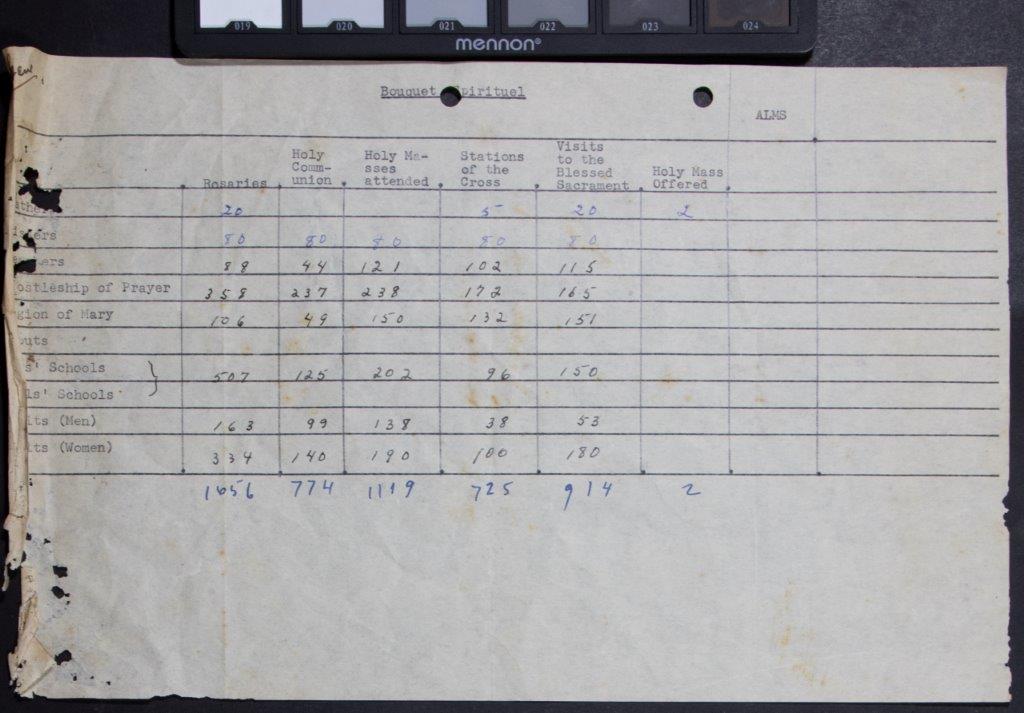 019 020 021 022 023 024
mennon®
Bouquet Spirituel
ALMS
Rosaries Holy Comm-union Holy Ma-sses attended Stations of the Cross Visits to the Blessed Sacrament Holy Mass Offered
athers 20 5 20 2
isters 80 80 80 80 80
ers 88 44 121 102 115
ostleship of Prayer 358 237 238 172 165
gion of Mary 106 49 150 132 151
outs
s' Schools } 507 125 202 96 150
ls' Schools
lts (Men) 163 99 138 38 53
lts (Women) 334 140 190 100 180
1656 774 1119 725 914 2